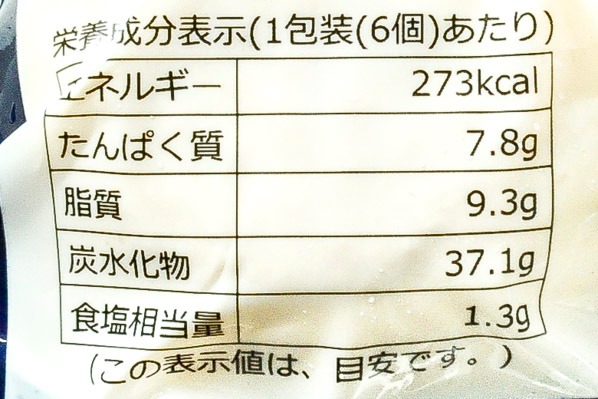 栄養成分表示(1包装(6個)あたり)
エネルギー 273kcal
たんぱく質 7.8g
脂質 9.3g
炭水化物 37.1g
食塩相当量 1.3g
(この表示値は、目安です。)